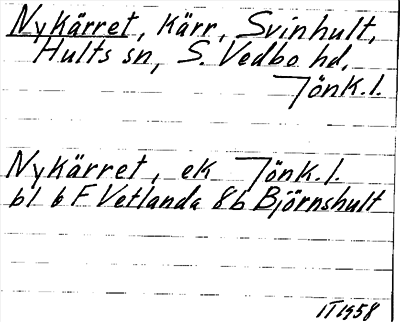 Nykärret, Kärr, Svinhult,
Hults sn, S. Vedbo hd,
Jönk.l.
Nykärret, ek Jönk.l.
bl 6 F Vetlanda 8b Björnshult
IT 1958